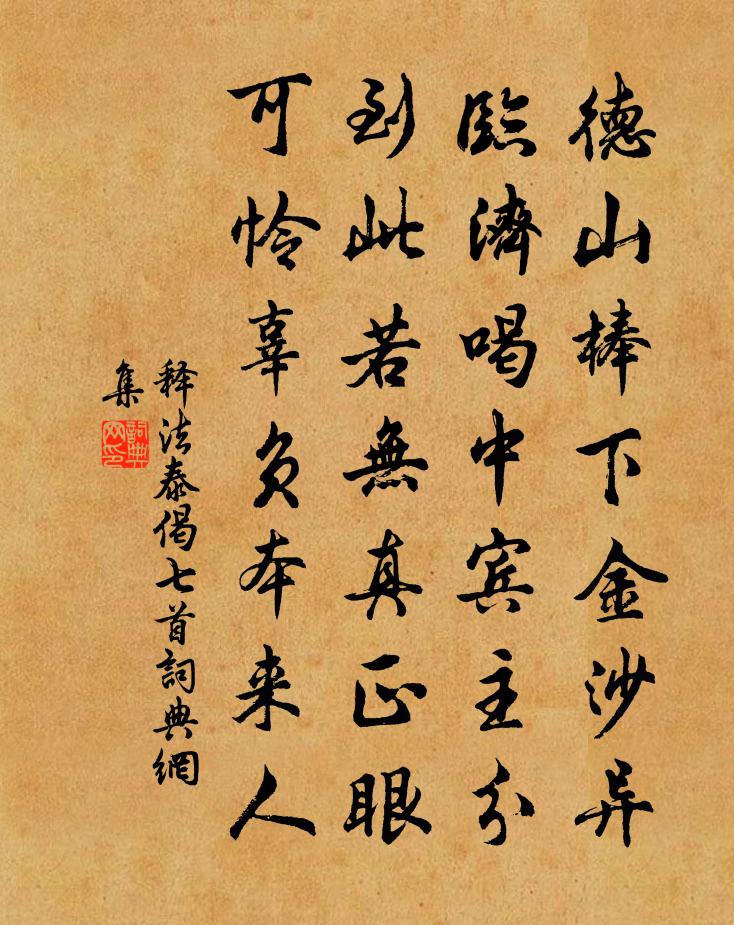 德山棒下金沙异
臨濟喝中宾主分
到此若無真正眼
可怜辜负本来人
释法泰偈七首詞典網
集
詞典網印